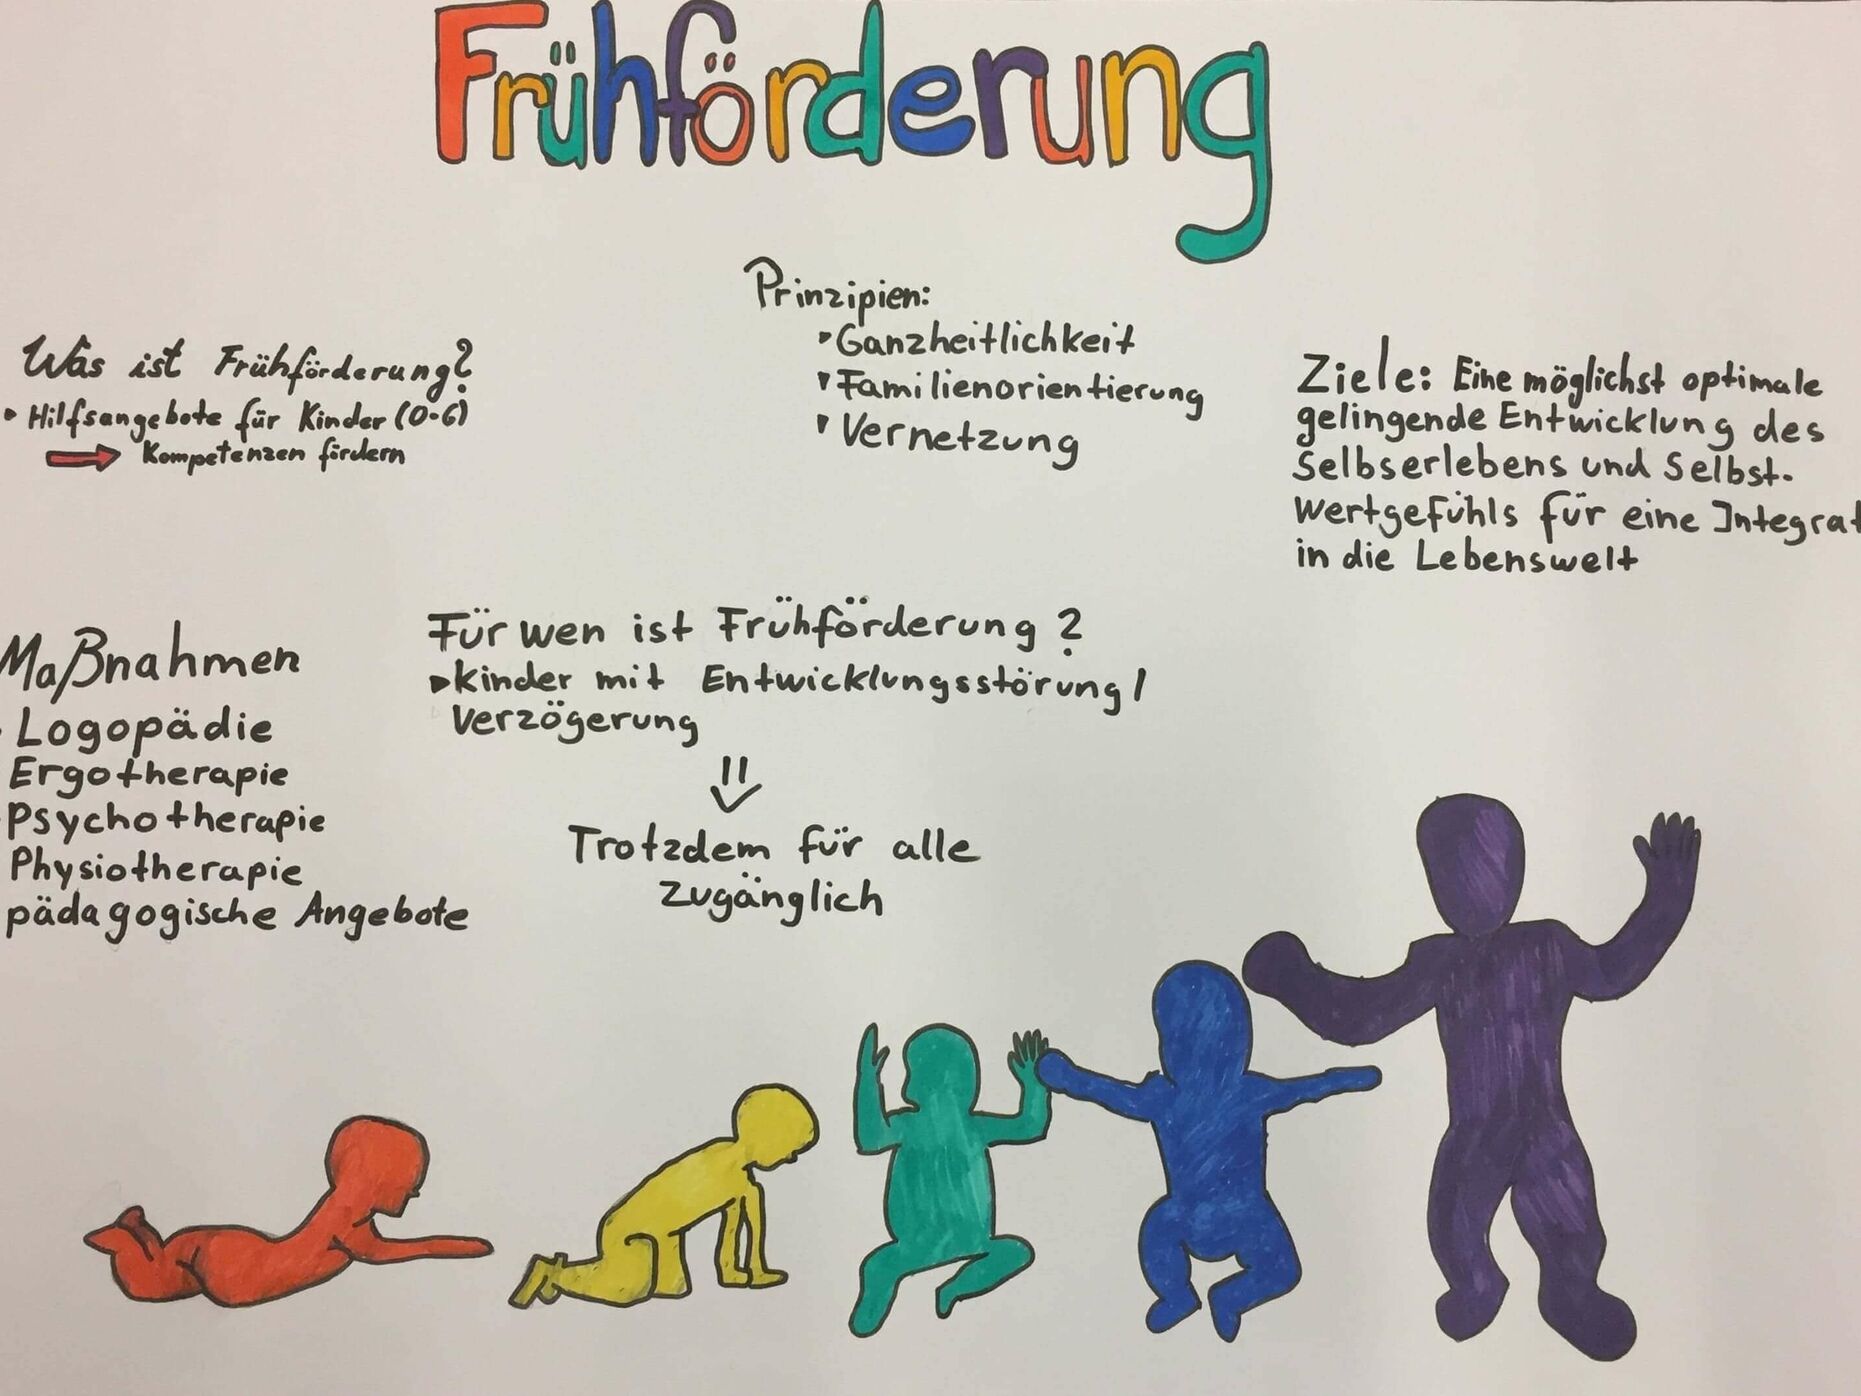 Frühförderung
Was ist Frühförderung?
Hilfsangebote für Kinder (0-6)
Kompetenzen fördern
Prinzipien:
Ganzheitlichkeit
Familienorientierung
Vernetzung
Ziele: Eine möglichst optimale
gelingende Entwicklung des
Selbserlebens und Selbst-
wertgefühls für eine Integrat
in die Lebenswelt
Maßnahmen
Logopädie
Ergotherapie
Psychotherapie
Physiotherapie
pädagogische Angebote
Für wen ist Frühförderung?
Kinder mit Entwicklungsstörung/
Verzögerung
Trotzdem für alle
zugänglich